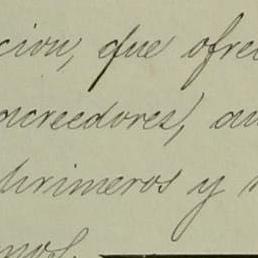 cion, que ofre
acreedores, au
primeros y
mos.